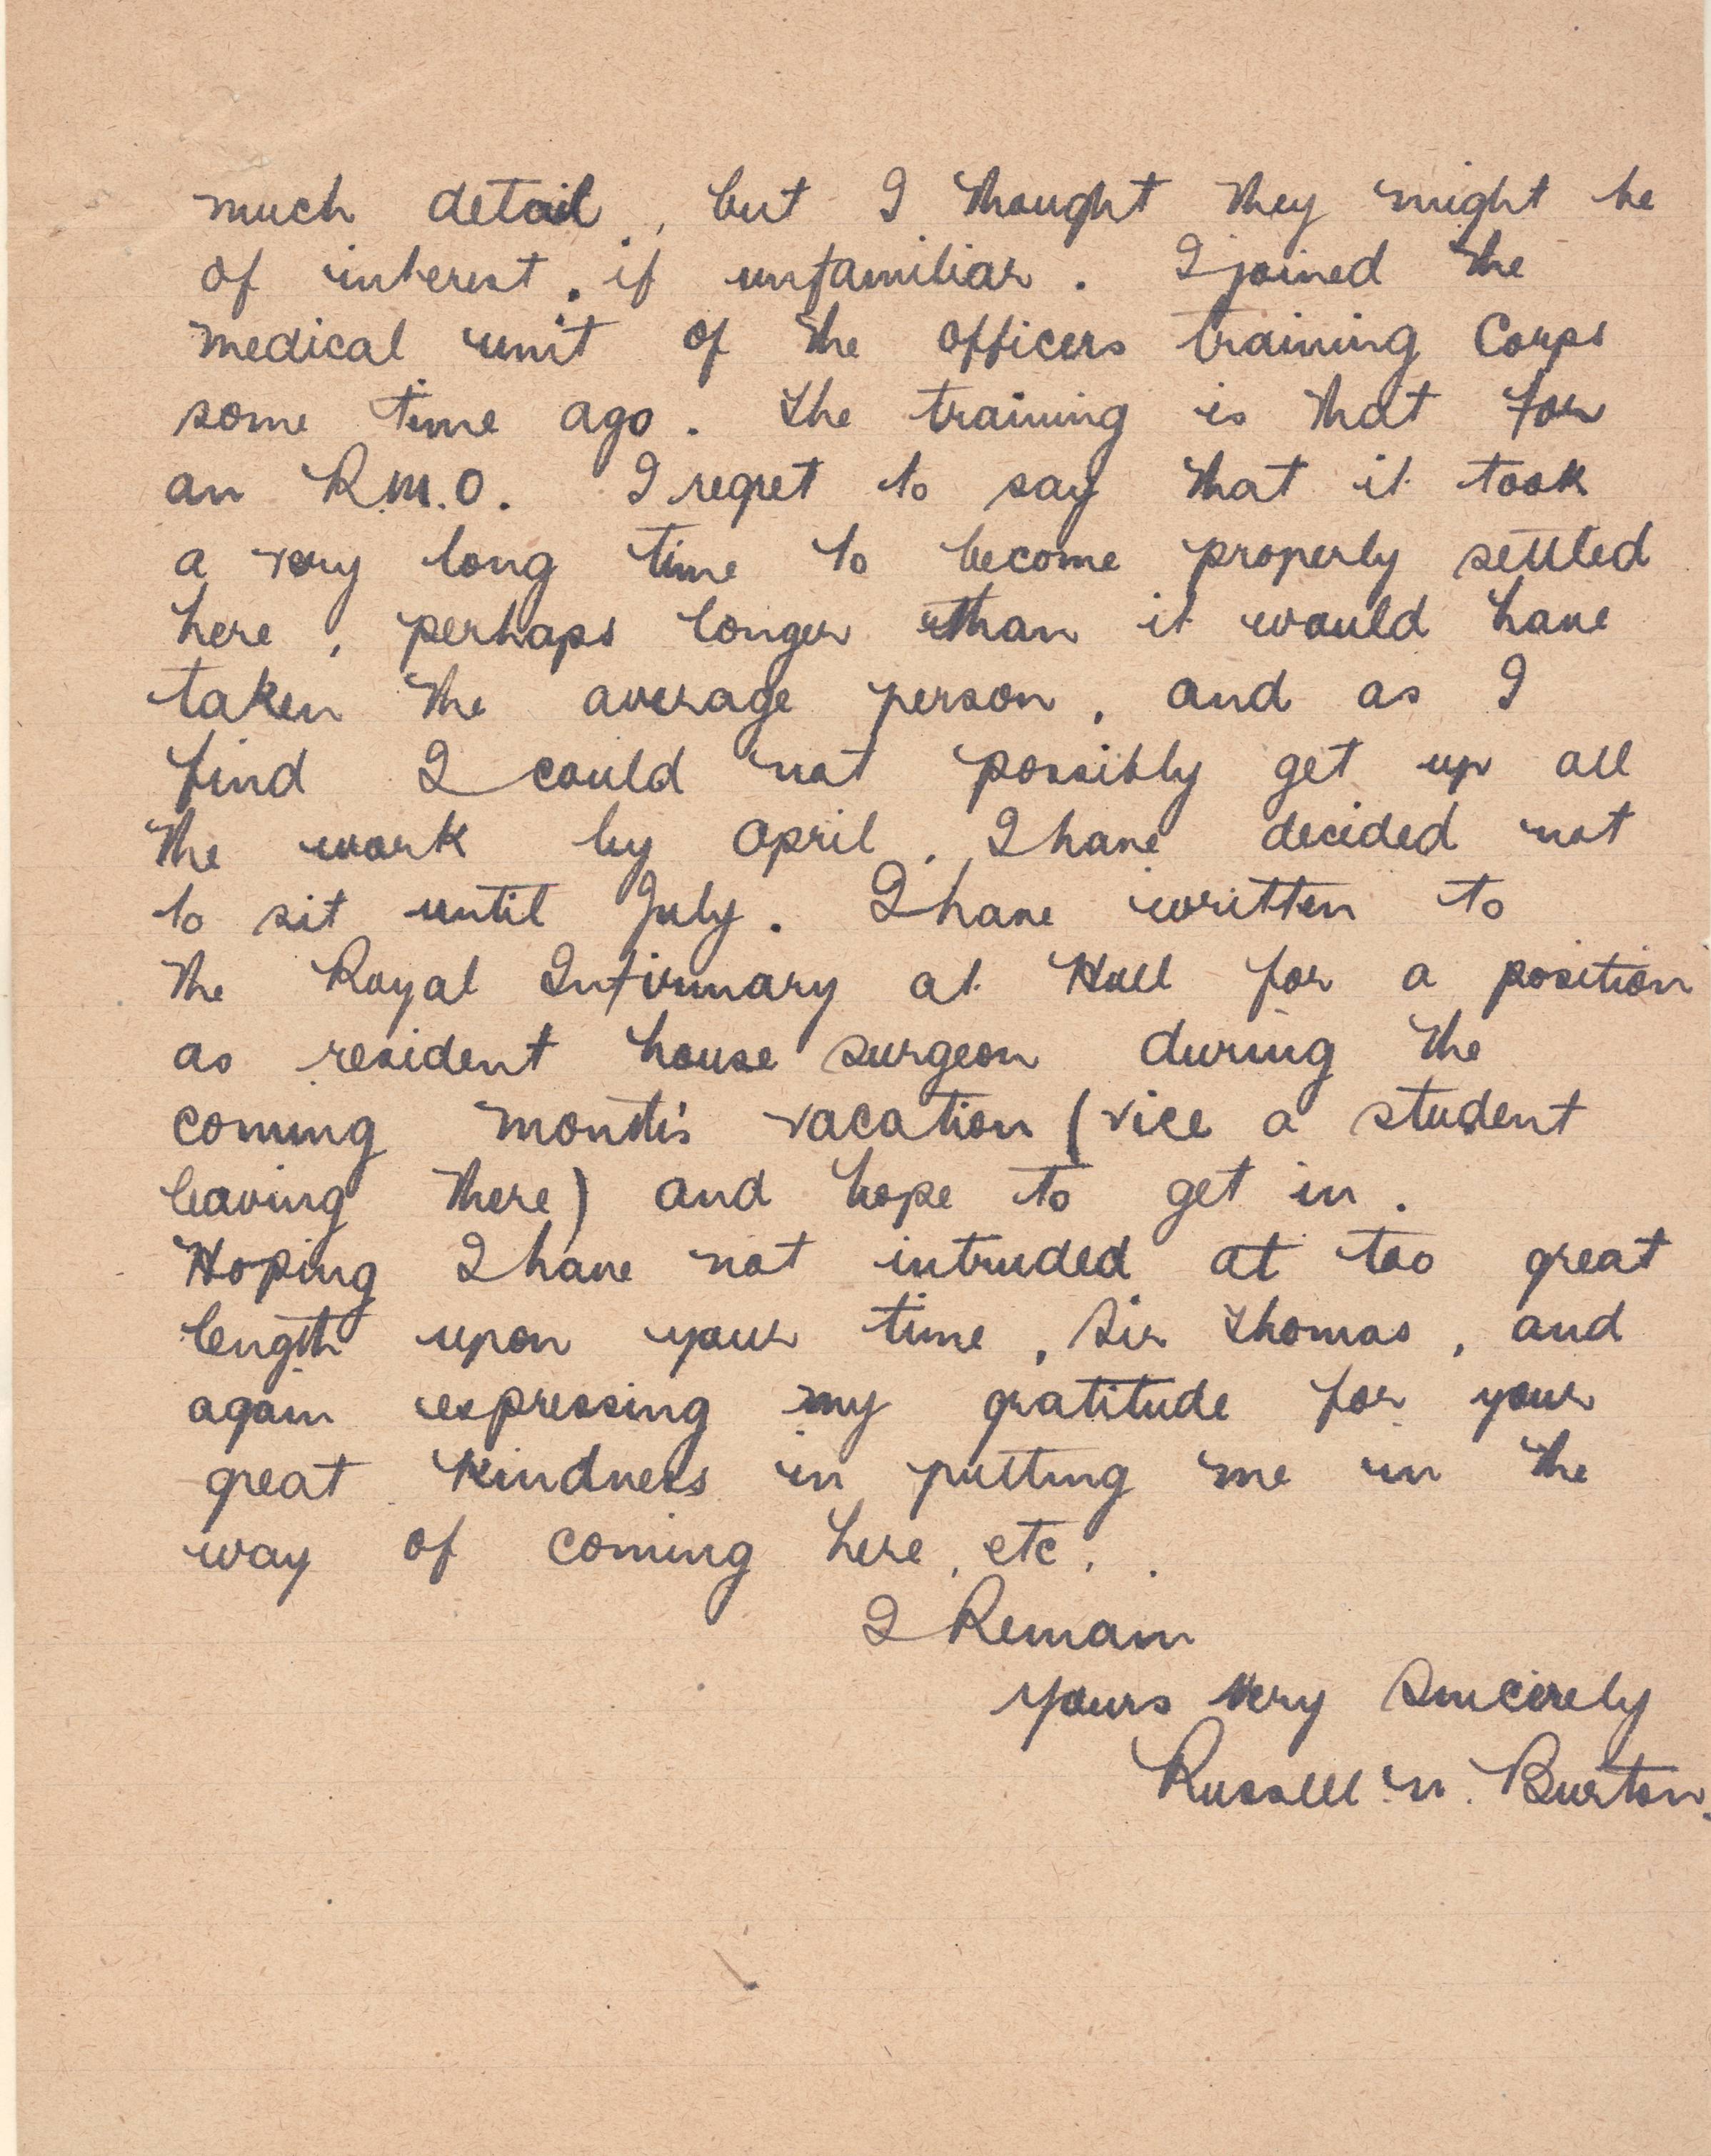 much detail, but I thought they might be
of interest, if unfamiliar. I joined the
medical unit of the Officers training Corps
some time ago. The training is that for
an R.M.O. I regret to say that it took
a very long time to become properly settled
here, perhaps longer than it would have
taken the average person, and as I
find I could not possibly get up all
the work by April, I have decided not
to sit until July. I have written to
the Royal Infirmary at Hull for a position
as resident house surgeon during the
coming month's vacation (vice a student
leaving there) and hope to get in.
Hoping I have not intruded at too great
length upon your time, Sir Thomas, and
again expressing my gratitude for your
great kindness in putting me in the
way of coming here, etc.
I Remain
yours very sincerely
Russell N. Burton.